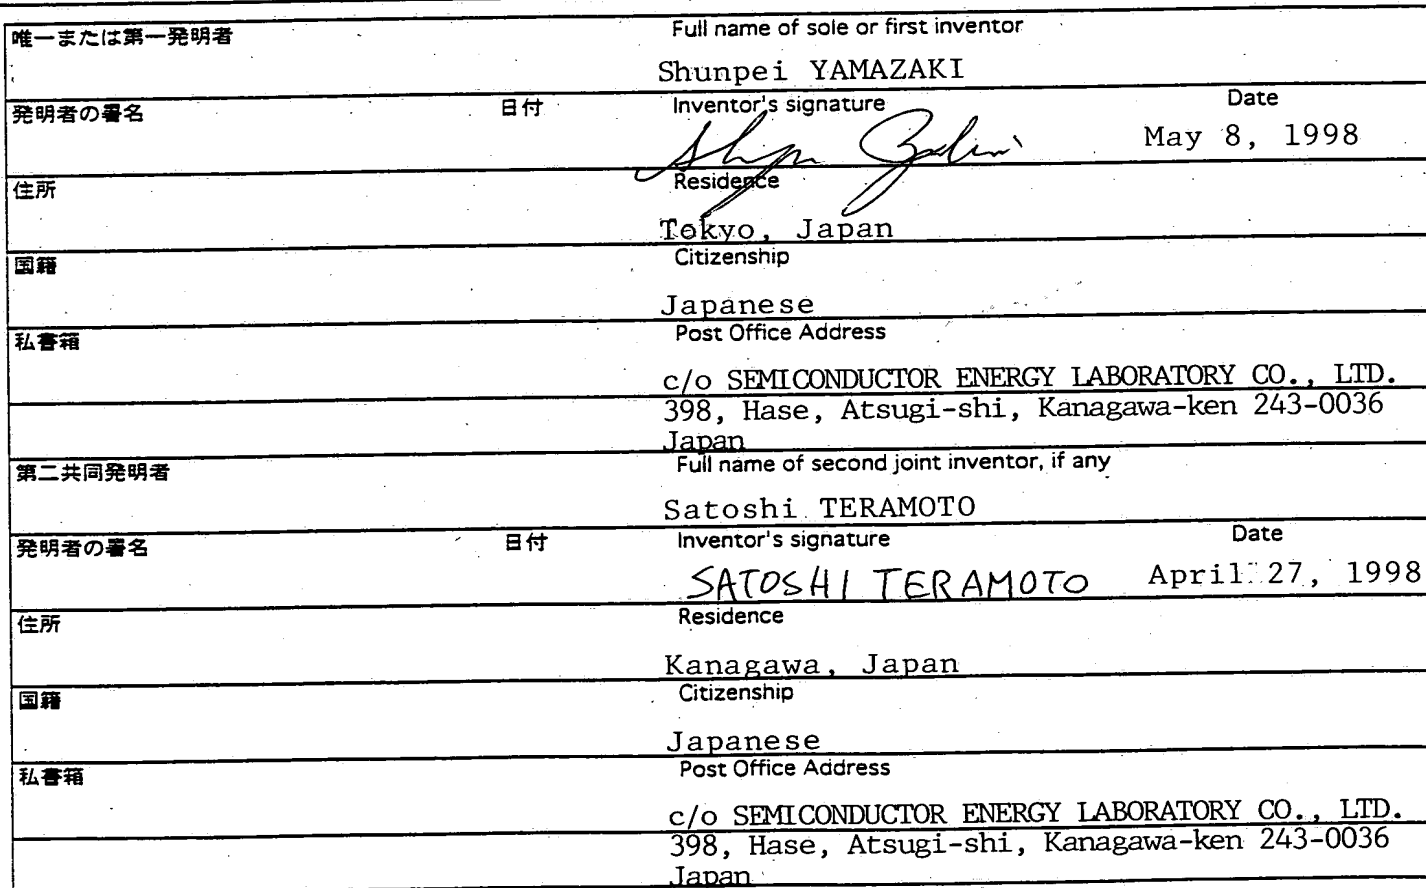 唯一または第一発明者 Full name of sole or first inventor
Shunpei YAMAZAKI
発明者の署名 日付 Inventor's signature Date
May 8, 1998
住所 Residence
Tokyo, Japan
国籍 Citizenship
Japanese
私書箱 Post Office Address
c/o SEMICONDUCTOR ENERGY LABORATORY CO., LTD.
398, Hase, Atsugi-shi, Kanagawa-ken 243-0036
Japan
第二共同発明者 Full name of second joint inventor, if any
Satoshi TERAMOTO
発明者の署名 日付 Inventor's signature Date
SATOSHI TERAMOTO April 27, 1998
住所 Residence
Kanagawa, Japan
国籍 Citizenship
Japanese
私書箱 Post Office Address
c/o SEMICONDUCTOR ENERGY LABORATORY CO., LTD.
398, Hase, Atsugi-shi, Kanagawa-ken 243-0036
Japan